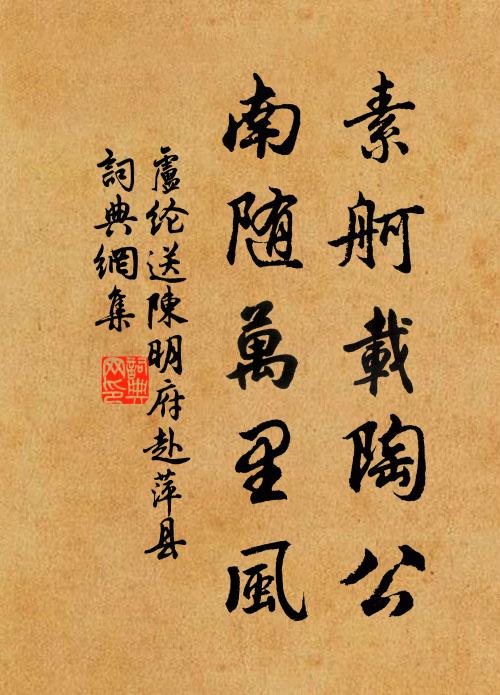 素舸載陶公
南随萬里風
盧纶送陳明府赴萍县
詞典網集
詞典网印